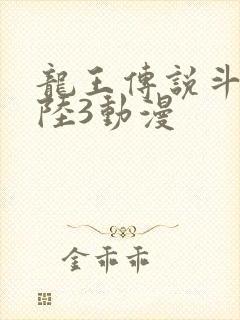 龍王傳說斗
陸3動漫
金乖乖